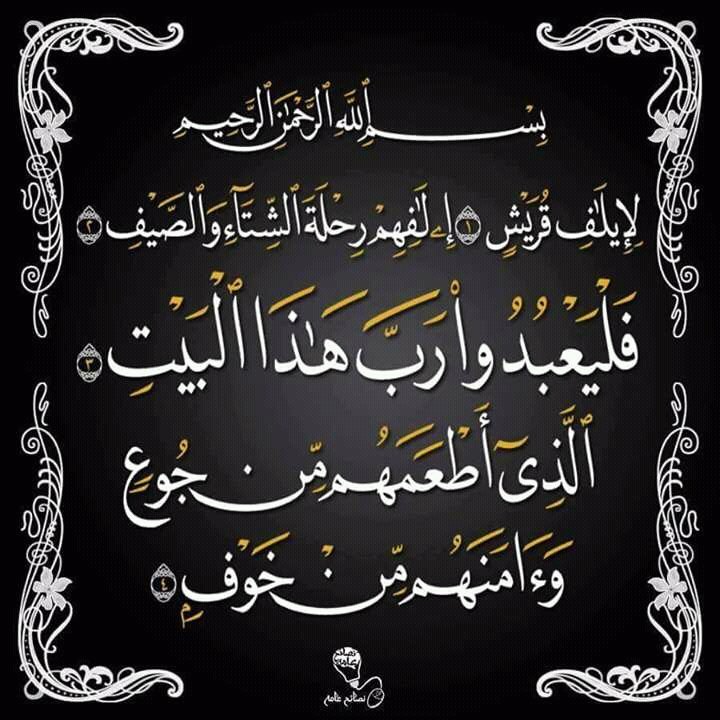 بِسْمِ ٱللَّهِ ٱلرَّحْمَٰنِ ٱلرَّحِيمِ
لِإِيلَٰفِ قُرَيْشٍ ١ إِۦلَٰفِهِمْ رِحْلَةَ ٱلشِّتَآءِ وَٱلصَّيْفِ ٢
فَلْيَعْبُدُوا۟ رَبَّ هَٰذَا ٱلْبَيْتِ ٣
ٱلَّذِىٓ أَطْعَمَهُم مِّن جُوعٍ
وَءَامَنَهُم مِّنْ خَوْفٍۭ ٤
نصائح عامه
نصائح عامه